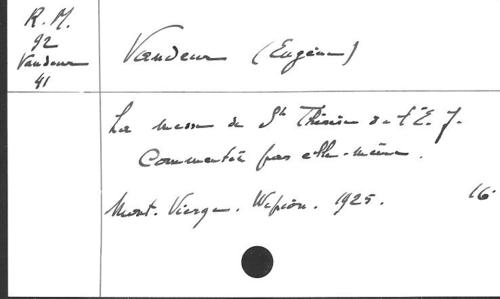 R. M.
92
Vandeur
41
Vandeur (Eugène)
La messe de Ste Thérèse de l'E. J.
Commentée par elle-même.
Mont-Vierge. Wépion. 1925. 16°